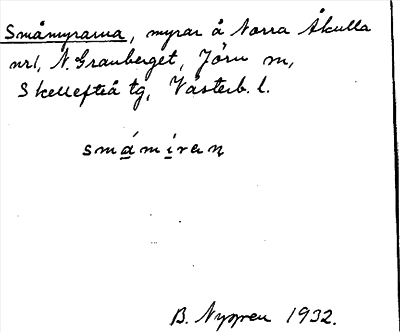 Småmyrarna, myrar å Norra Åkulla
nr1, N. Granberget, Jörn m,
Skellefteå tg, Västerb. l.
smámíran
B. Nygren 1932.